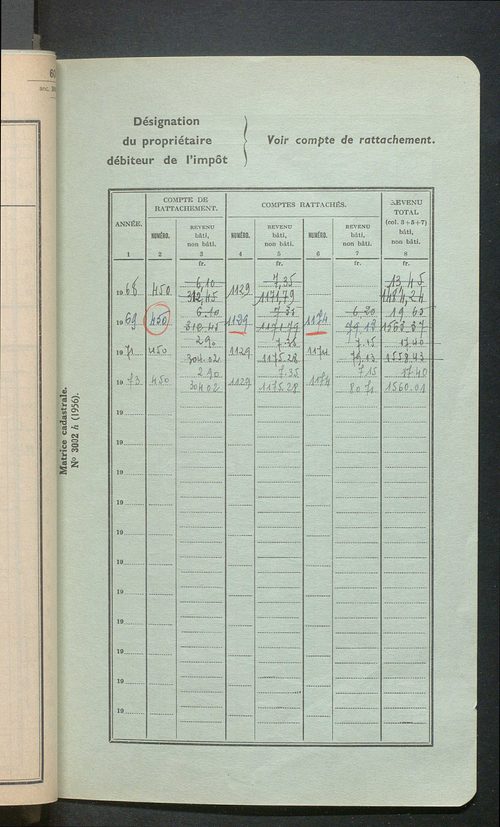 60
anc. 30
Désignation
du propriétaire
débiteur de l'impôt
Voir compte de rattachement.
COMPTE DE RATTACHEMENT. COMPTES RATTACHÉS. REVENU TOTAL (col. 3+5+7) bâti, non bâti.
ANNÉE. NUMÉRO. REVENU bâti, non bâti. NUMÉRO. REVENU bâti, non bâti. NUMÉRO. REVENU bâti, non bâti.
1 2 3 4 5 6 7 8
fr. fr. fr. fr.
6,10 7,35 13,45
1968 450 312,45 1129 1171,79 1484,24
6.10 7.35 6.20 19 65
1969 450 312.45 1129 1171.79 1174
2.90 7.35 7.15 17.40
1971 450 304.02 1129 1175.28 1174 79.13 1558.43
2.90 7.35 7.15 17.40
1973 450 304.02 1129 1175.28 1174 80.71 1560.01
19
19
19
19
19
19
19
19
19
19
19
Matrice cadastrale.
N° 3002 h (1956).